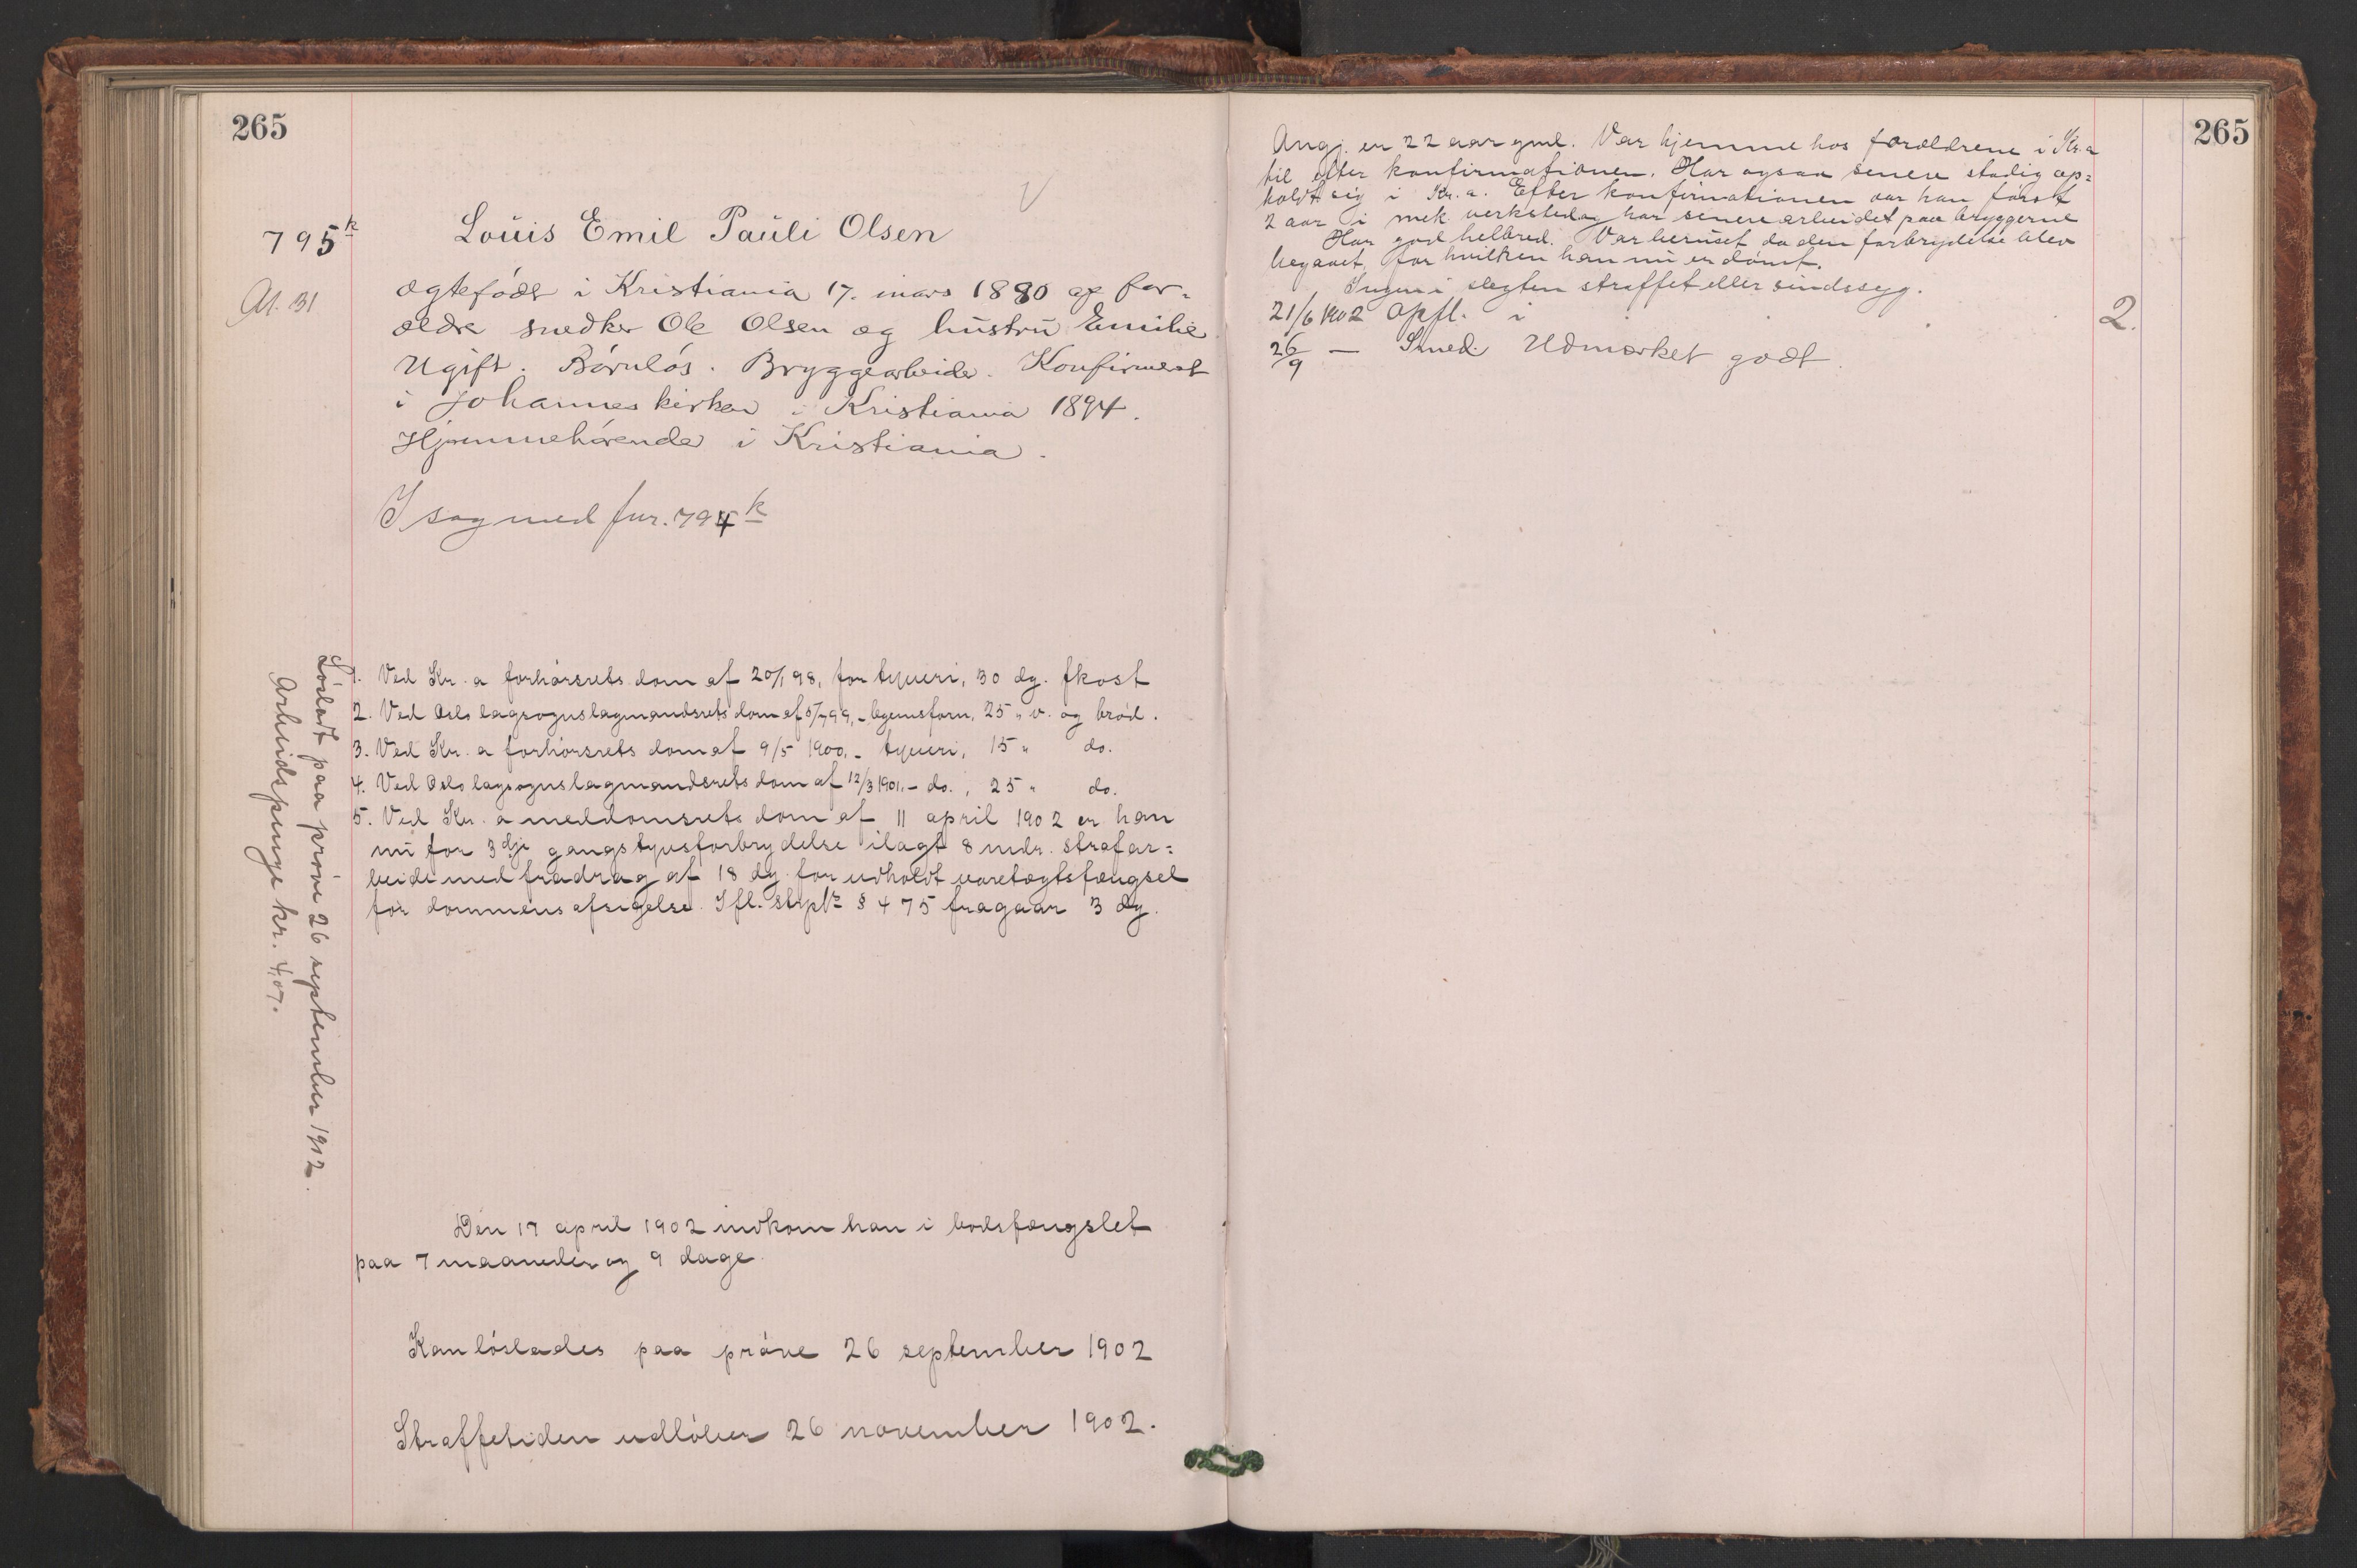 265
795 k
At. 31
Louis Emil Pauli Olsen
ægtefødt i Kristiania 17. mars 1880 af for-
ældre snedker Ole Olsen og hustru Emilie
Ugift. Børnløs. Bryggearbeider. Konfirmert
i Johanneskirken i Kristiania 1894.
Hjemmehørende i Kristiania.
I sag med fnr. 794 k
1. Ved Kr.a forhørsrets dom af 20/1 98, for tyveri, 30 dg. fkost
2. Ved Oslo lagsogns lagmandsrets dom af 5/7 99, - legemsforn, 25 " v. og brød.
3. Ved Kr.a forhørsrets dom af 9/5 1900, - tyveri, 15 " do.
4. Ved Oslo lagsogns lagmandsrets dom af 12/3 1901, - do., 25 " do.
5. Ved Kr.a meddomsrets dom af 11 april 1902 er han
nu for 3dje gangs tyvsforbrydelse ilagt 8 mdr. strafar=
beide med fradrag af 18 dg. for udholdt varetægtsfængsel
før dommens afsigelse. Ifl. stpl § 475 fragaar 3 dg.
Løsladt paa prøve 26 september 1902.
Arbeidspenge kr. 4,07.
Den 17 april 1902 indkom han i bodsfængslet
paa 7 maaneder og 9 dage.
Kan løslades paa prøve 26 september 1902
Straffetiden udløber 26 november 1902.
265
Angj. er 22 aar gml. Var hjemme hos forældrene i Kr.a
til efter konfirmationen. Har ogsaa senere stadig op=
holdt sig i Kr.a. Efter konfirmationen var han først
2 aar i mek verksted og har senere arbeidet paa bryggerne
Har god helbred. Var beruset da den forbrydelse blev
begaaet, for hvilken han nu er dømt.
Ingen i slegten straffet eller sindssyg.
21/6 1902 Opfl. i 2.
26/9 — Smed. Udmærket godt.